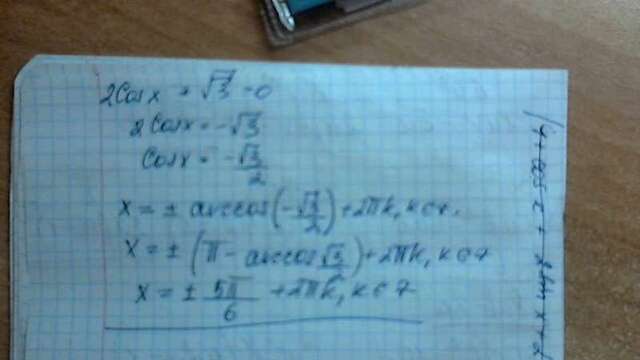 2Cosx + √3 = 0
2Cosx = -√3
Cosx = -√3/2
x = ± arccos(-√3/2) + 2πk, k∈z.
x = ± (π - arccos √3/2) + 2πk, k∈z
x = ± 5π/6 + 2πk, k∈z